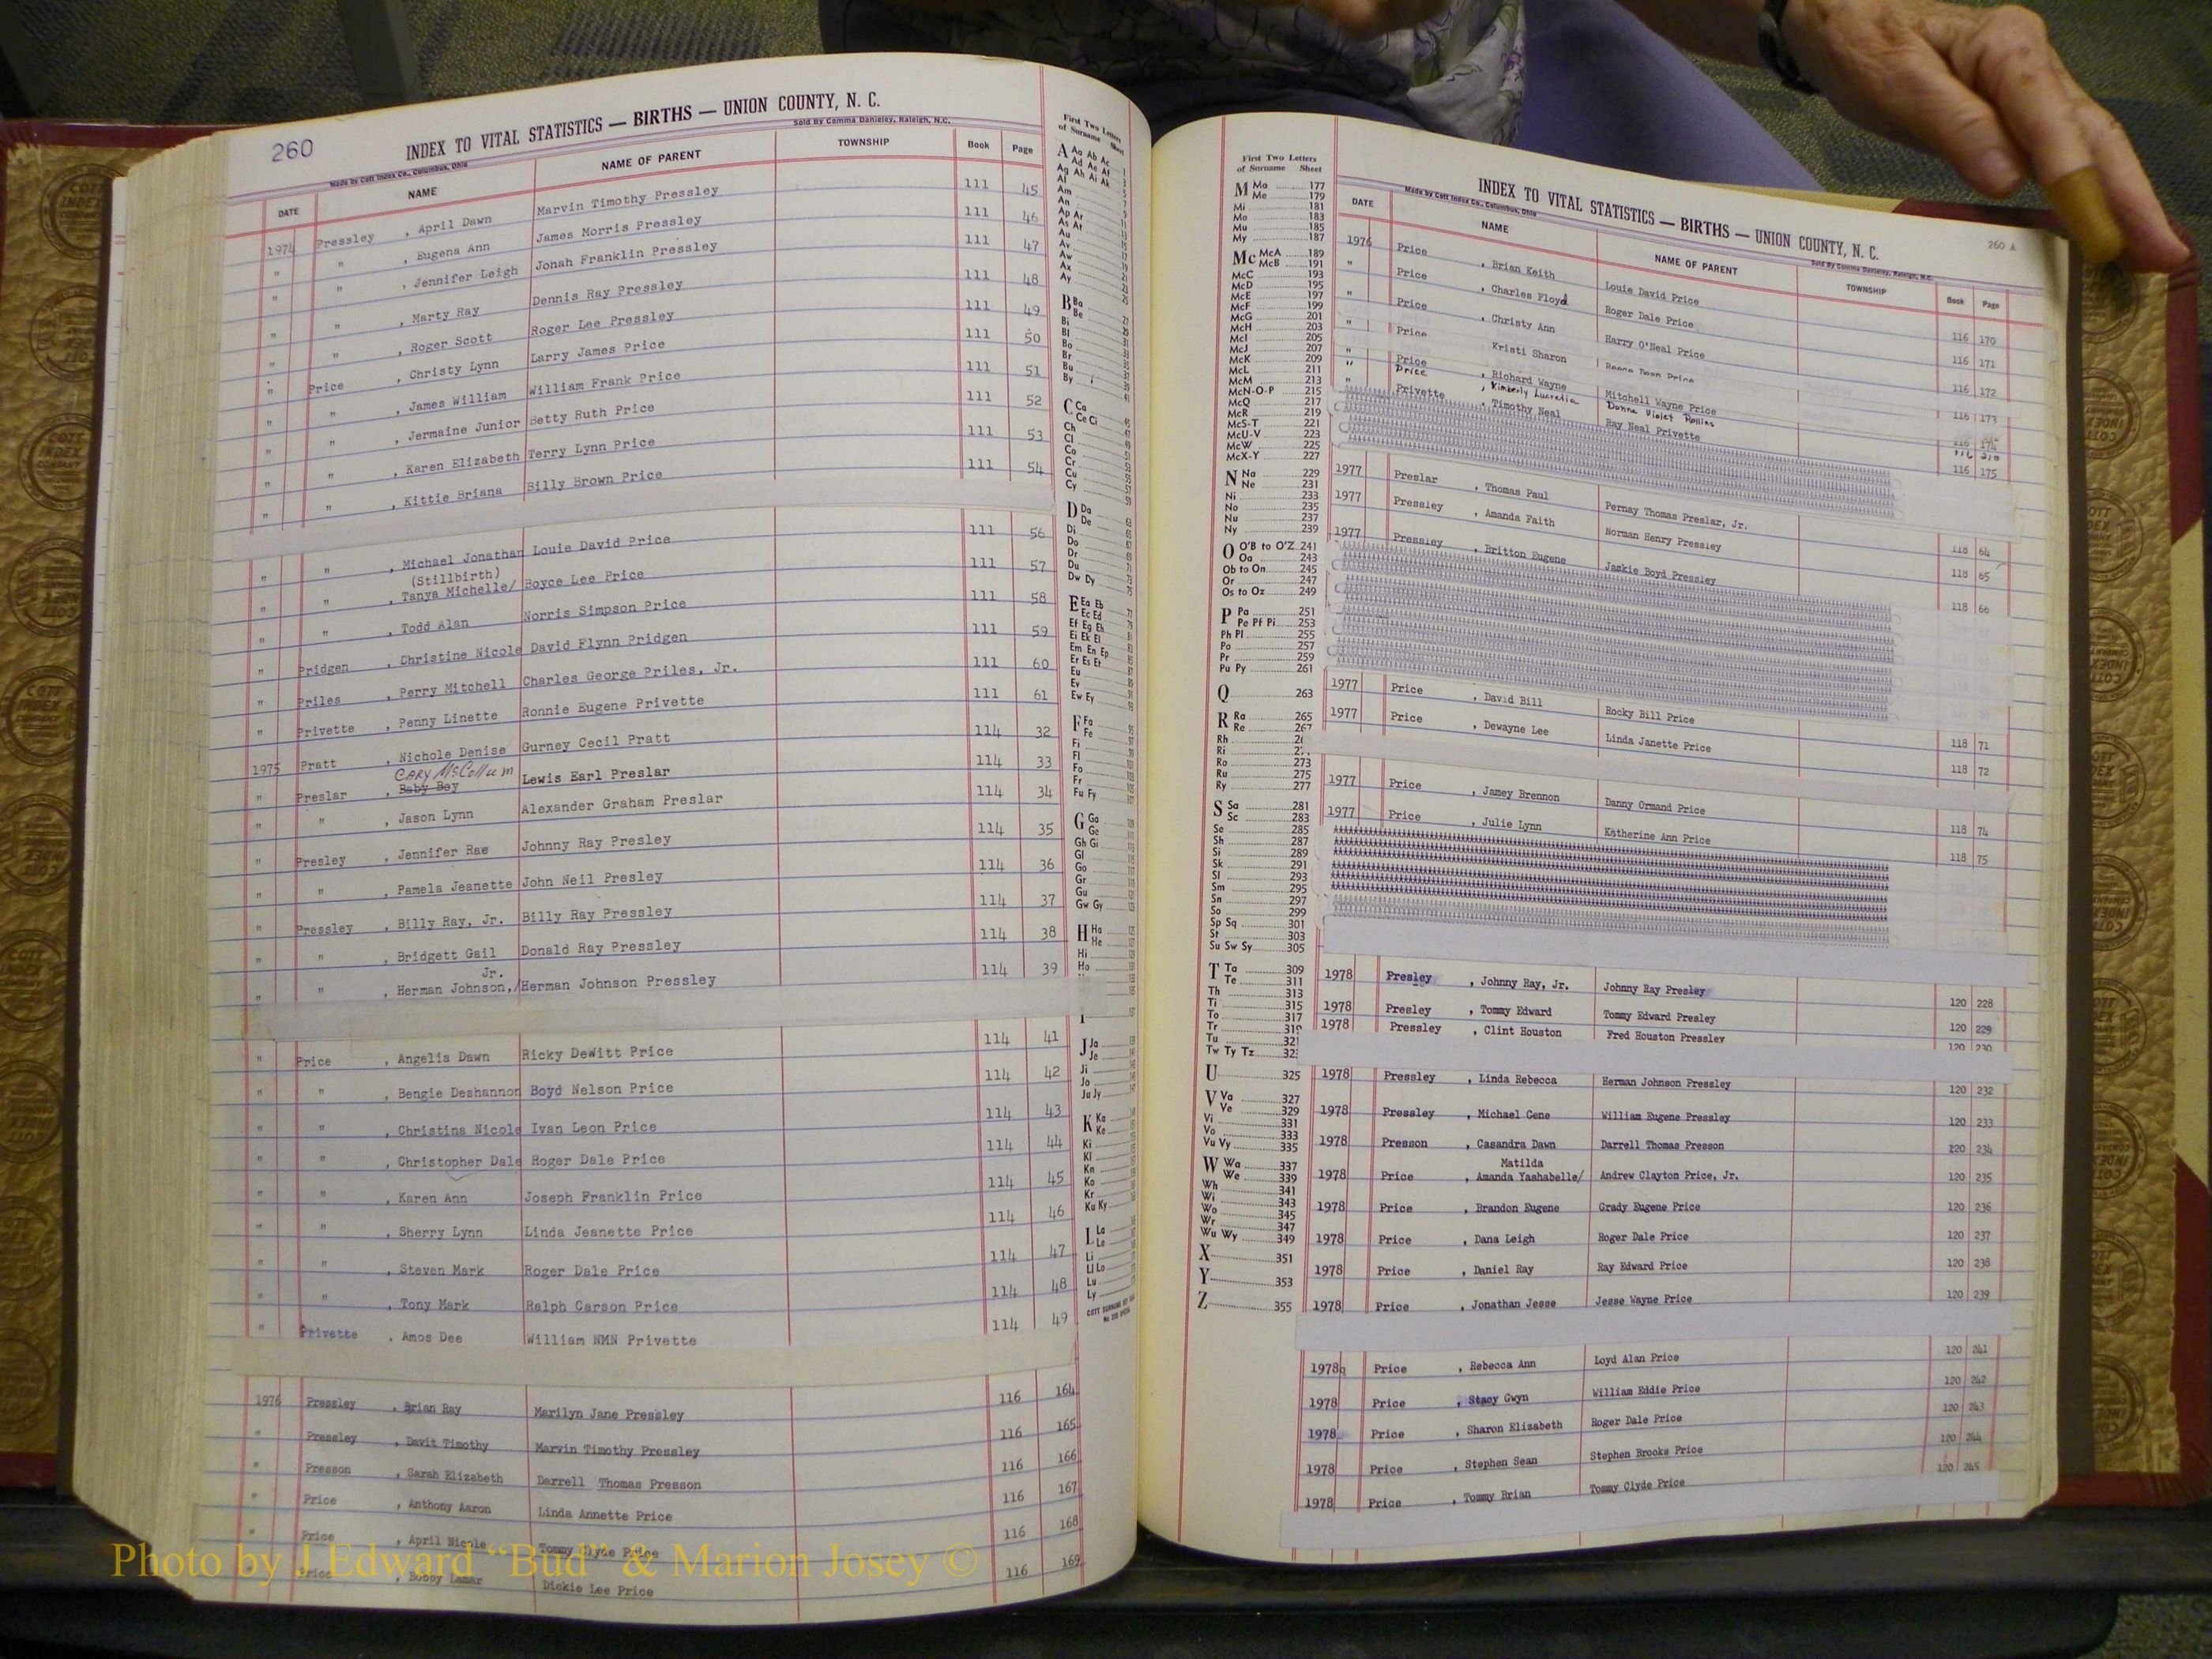 260
INDEX TO VITAL STATISTICS — BIRTHS — UNION COUNTY, N. C.
Made by Cott Index Co., Columbus, Ohio
Sold By Comma Danieley, Raleigh, N.C.
DATE NAME NAME OF PARENT TOWNSHIP Book Page
1974 Pressley , April Dawn Marvin Timothy Pressley 111 45
" " , Eugena Ann James Morris Pressley 111 46
" " , Jennifer Leigh Jonah Franklin Pressley 111 47
" " , Marty Ray Dennis Ray Pressley 111 48
" " , Roger Scott Roger Lee Pressley 111 49
" Price , Christy Lynn Larry James Price 111 50
" " , James William William Frank Price 111 51
" " , Jermaine Junior Betty Ruth Price 111 52
" " , Karen Elizabeth Terry Lynn Price 111 53
" " , Kittie Briana Billy Brown Price 111 54
" " , Michael Jonathan Louie David Price 111 56
(Stillbirth)
" " , Tanya Michelle/ Boyce Lee Price 111 57
" " , Todd Alan Norris Simpson Price 111 58
" Pridgen , Christine Nicole David Flynn Pridgen 111 59
" Priles , Perry Mitchell Charles George Priles, Jr. 111 60
" Privette , Penny Linette Ronnie Eugene Privette 111 61
1975 Pratt , Nichole Denise Gurney Cecil Pratt 114 32
CARY McCollum
" Preslar , Baby Boy Lewis Earl Preslar 114 33
" " , Jason Lynn Alexander Graham Preslar 114 34
" Presley , Jennifer Rae Johnny Ray Presley 114 35
" " , Pamela Jeanette John Neil Presley 114 36
" Pressley , Billy Ray, Jr. Billy Ray Pressley 114 37
" " , Bridgett Gail Donald Ray Pressley 114 38
Jr.
" " , Herman Johnson,/ Herman Johnson Pressley 114 39
" Price , Angelia Dawn Ricky DeWitt Price 114 41
" " , Bengie Deshannon Boyd Nelson Price 114 42
" " , Christina Nicole Ivan Leon Price 114 43
" " , Christopher Dale Roger Dale Price 114 44
" " , Karen Ann Joseph Franklin Price 114 45
" " , Sherry Lynn Linda Jeanette Price 114 46
" " , Steven Mark Roger Dale Price 114 47
" " , Tony Mark Ralph Carson Price 114 48
" Privette , Amos Dee William NMN Privette 114 49
1976 Pressley , Brian Ray Marilyn Jane Pressley 116 164
" Pressley , Davit Timothy Marvin Timothy Pressley 116 165
" Presson , Sarah Elizabeth Darrell Thomas Presson 116 166
" Price , Anthony Aaron Linda Annette Price 116 167
" Price , April Nicole Tommy Clyde Price 116 168
Price , Bobby Lamar Dickie Lee Price 116 169
First Two Letters
of Surname Sheet
A Aa Ab Ac
Ad Ae Af
Ag Ah Ai Ak
Al
Am
An
Ap Ar
As At
Au
Av
Aw
Ax
Ay
B Ba
Be
Bi
Bl
Bo
Br
Bu
By
C Ca
Ce Ci
Ch
Cl
Co
Cr
Cu
Cy
D Da
De
Di
Do
Dr
Du
Dw Dy
E Ea Eb
Ec Ed
Ef Eg Eh
Ei Ek El
Em En Ep
Er Es Et
Eu
Ev
Ew Ey
F Fa
Fe
Fi
Fl
Fo
Fr
Fu Fy
G Ga
Ge
Gh Gi
Gl
Go
Gr
Gu
Gw Gy
H Ha
He
Hi
Ho
J Ja
Je
Ji
Jo
Ju Jy
K Ka
Ke
Ki
Kl
Kn
Ko
Kr
Ku Ky
L La
Le
Li
Ll Lo
Lu
Ly
First Two Letters
of Surname Sheet
M Ma 177
Me 179
Mi 181
Mo 183
Mu 185
My 187
Mc McA 189
McB 191
McC 193
McD 195
McE 197
McF 199
McG 201
McH 203
McI 205
McJ 207
McK 209
McL 211
McM 213
McN-O-P 215
McQ 217
McR 219
McS-T 221
McU-V 223
McW 225
McX-Y 227
N Na 229
Ne 231
Ni 233
No 235
Nu 237
Ny 239
O O'B to O'Z 241
Oa 243
Ob to On 245
Or 247
Os to Oz 249
P Pa 251
Pe Pf Pi 253
Ph Pl 255
Po 257
Pr 259
Pu Py 261
Q 263
R Ra 265
Re 267
Rh
Ri
Ro 273
Ru 275
Ry 277
S Sa 281
Sc 283
Se 285
Sh 287
Si 289
Sk 291
Sl 293
Sm 295
Sn 297
So 299
Sp Sq 301
St 303
Su Sw Sy 305
T Ta 309
Te 311
Th 313
Ti 315
To 317
Tr 319
Tu 321
Tw Ty Tz
U 325
V Va 327
Ve 329
Vi 331
Vo 333
Vu Vy 335
W Wa 337
We 339
Wh 341
Wi 343
Wo 345
Wr 347
Wu Wy 349
X 351
Y 353
Z 355
INDEX TO VITAL STATISTICS — BIRTHS — UNION COUNTY, N. C.
260 A
Made by Cott Index Co., Columbus, Ohio
Sold By Comma Danieley, Raleigh, N.C.
DATE NAME NAME OF PARENT TOWNSHIP Book Page
1976 Price , Brian Keith Louie David Price 116 170
" Price , Charles Floyd Roger Dale Price 116 171
" Price , Christy Ann Harry O'Neal Price 116 172
" Price Kristi Sharon Reece Dean Price 116 173
" Price , Richard Wayne Mitchell Wayne Price 116 174
" Price , Kimberly Lucretia Donna Violet Rollins 116
" Privette , Timothy Neal Ray Neal Privette 116 175
1977 Preslar , Thomas Paul Pernay Thomas Preslar, Jr. 118 64
1977 Pressley , Amanda Faith Norman Henry Pressley 118 65
1977 Pressley , Britton Eugene Jackie Boyd Pressley 118 66
1977 Price , David Bill Rocky Bill Price 118 71
1977 Price , Dewayne Lee Linda Janette Price 118 72
1977 Price , Jamey Brennon Danny Ormand Price 118 74
1977 Price , Julie Lynn Katherine Ann Price 118 75
1978 Presley , Johnny Ray, Jr. Johnny Ray Presley 120 228
1978 Presley , Tommy Edward Tommy Edward Presley 120 229
1978 Pressley , Clint Houston Fred Houston Pressley 120 230
1978 Pressley , Linda Rebecca Herman Johnson Pressley 120 232
1978 Pressley , Michael Gene William Eugene Pressley 120 233
1978 Presson , Casandra Dawn Darrell Thomas Presson 120 234
Matilda
1978 Price , Amanda Yashabelle/ Andrew Clayton Price, Jr. 120 235
1978 Price , Brandon Eugene Grady Eugene Price 120 236
1978 Price , Dana Leigh Roger Dale Price 120 237
1978 Price , Daniel Ray Ray Edward Price 120 238
1978 Price , Jonathan Jesse Jesse Wayne Price 120 239
1978 Price , Rebecca Ann Loyd Alan Price 120 241
1978 Price , Stacy Gwyn William Eddie Price 120 242
1978 Price , Sharon Elizabeth Roger Dale Price 120 243
1978 Price , Stephen Sean Stephen Brooks Price 120 244
1978 Price , Tommy Brian Tommy Clyde Price 120 245
Photo by J.Edward “Bud” & Marion Josey ©